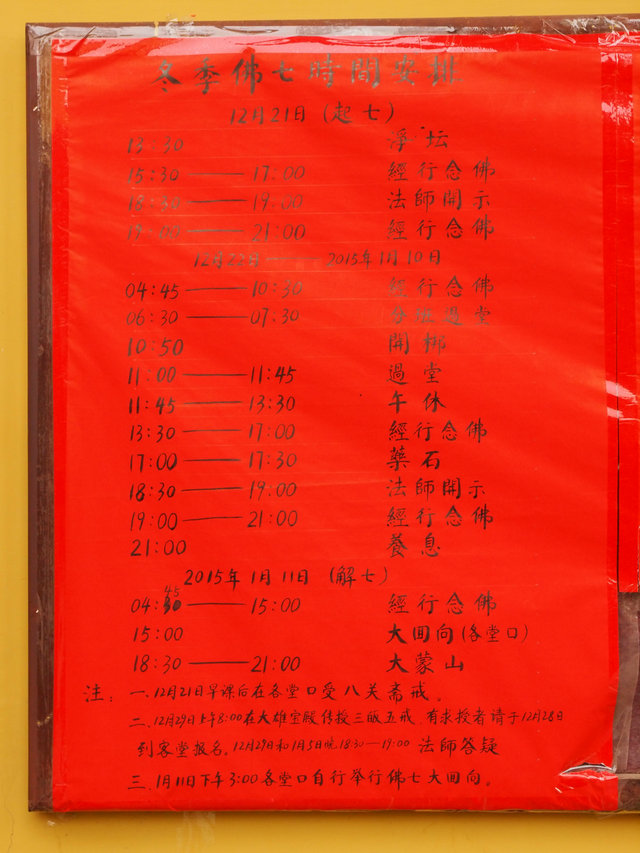 冬季佛七時間安排
12月21日（起七）
13:30 淨坛
15:30——17:00 經行念佛
18:30——19:00 法師開示
19:00——21:00 經行念佛
12月22日——2015年1月10日
04:45——10:30 經行念佛
06:30——07:30 過堂
10:50 開梆
11:00——11:45 過堂
11:45——13:30 午休
13:30——17:00 經行念佛
17:00——17:30 藥石
18:30——19:00 法師開示
19:00——21:00 經行念佛
21:00 養息
2015年1月11日（解七）
04:45——15:00 經行念佛
15:00 大回向(各堂口)
18:30——21:00 大蒙山
注：一、12月21日早课后在各堂口受八关斋戒。
二、12月29日上午8:00在大雄宝殿传授三皈五戒，有求授者请于12月28日
到客堂报名。12月29日和1月5日晚18:30—19:00 法师答疑
三、1月11日下午3:00各堂口自行举行佛七大回向。